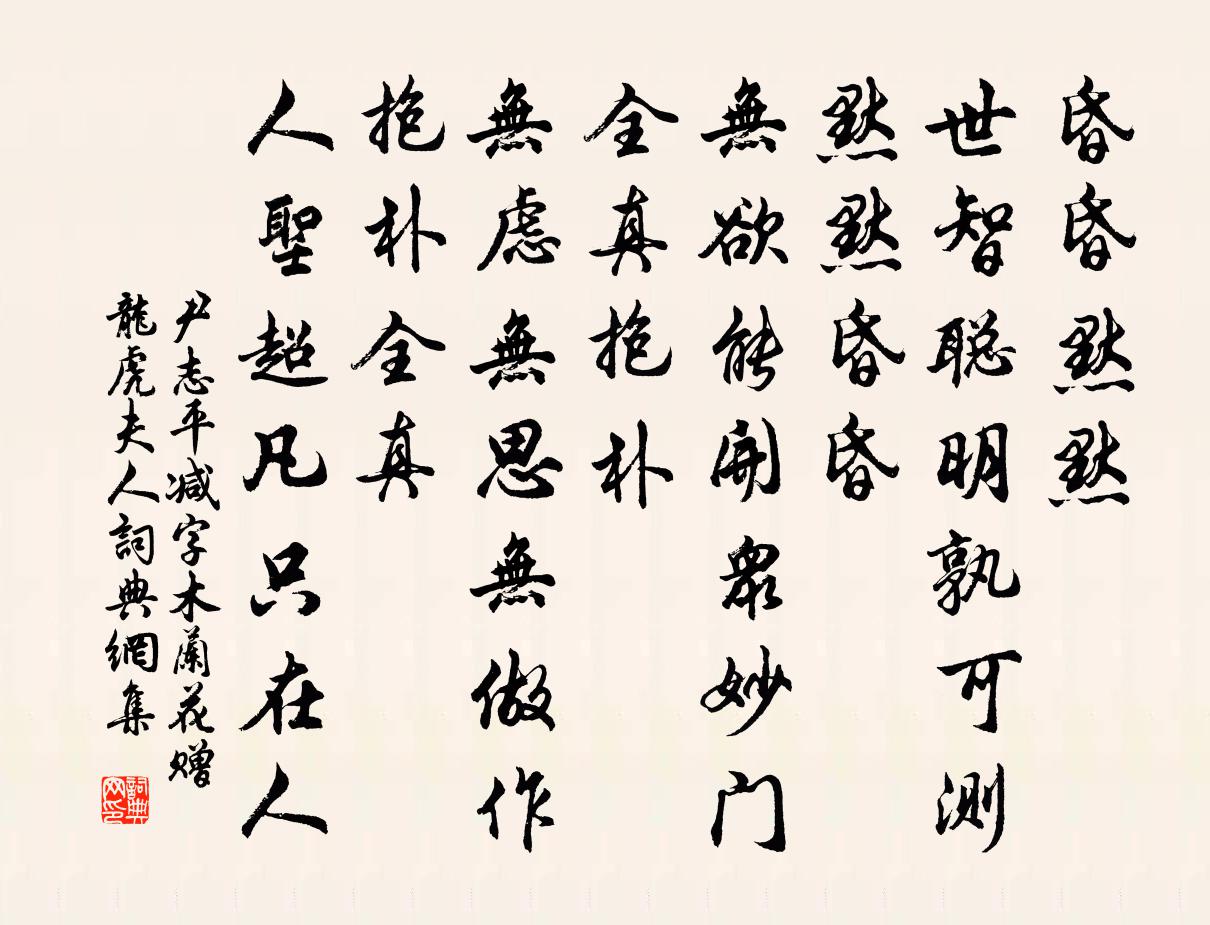 昏昏默默
世智聪明孰可测
默默昏昏
無欲能開眾妙门
全真抱朴
無慮無思無做作
抱朴全真
人聖超凡只在人
尹志平减字木蘭花赠
龍虎夫人詞典網集
詞典
网印